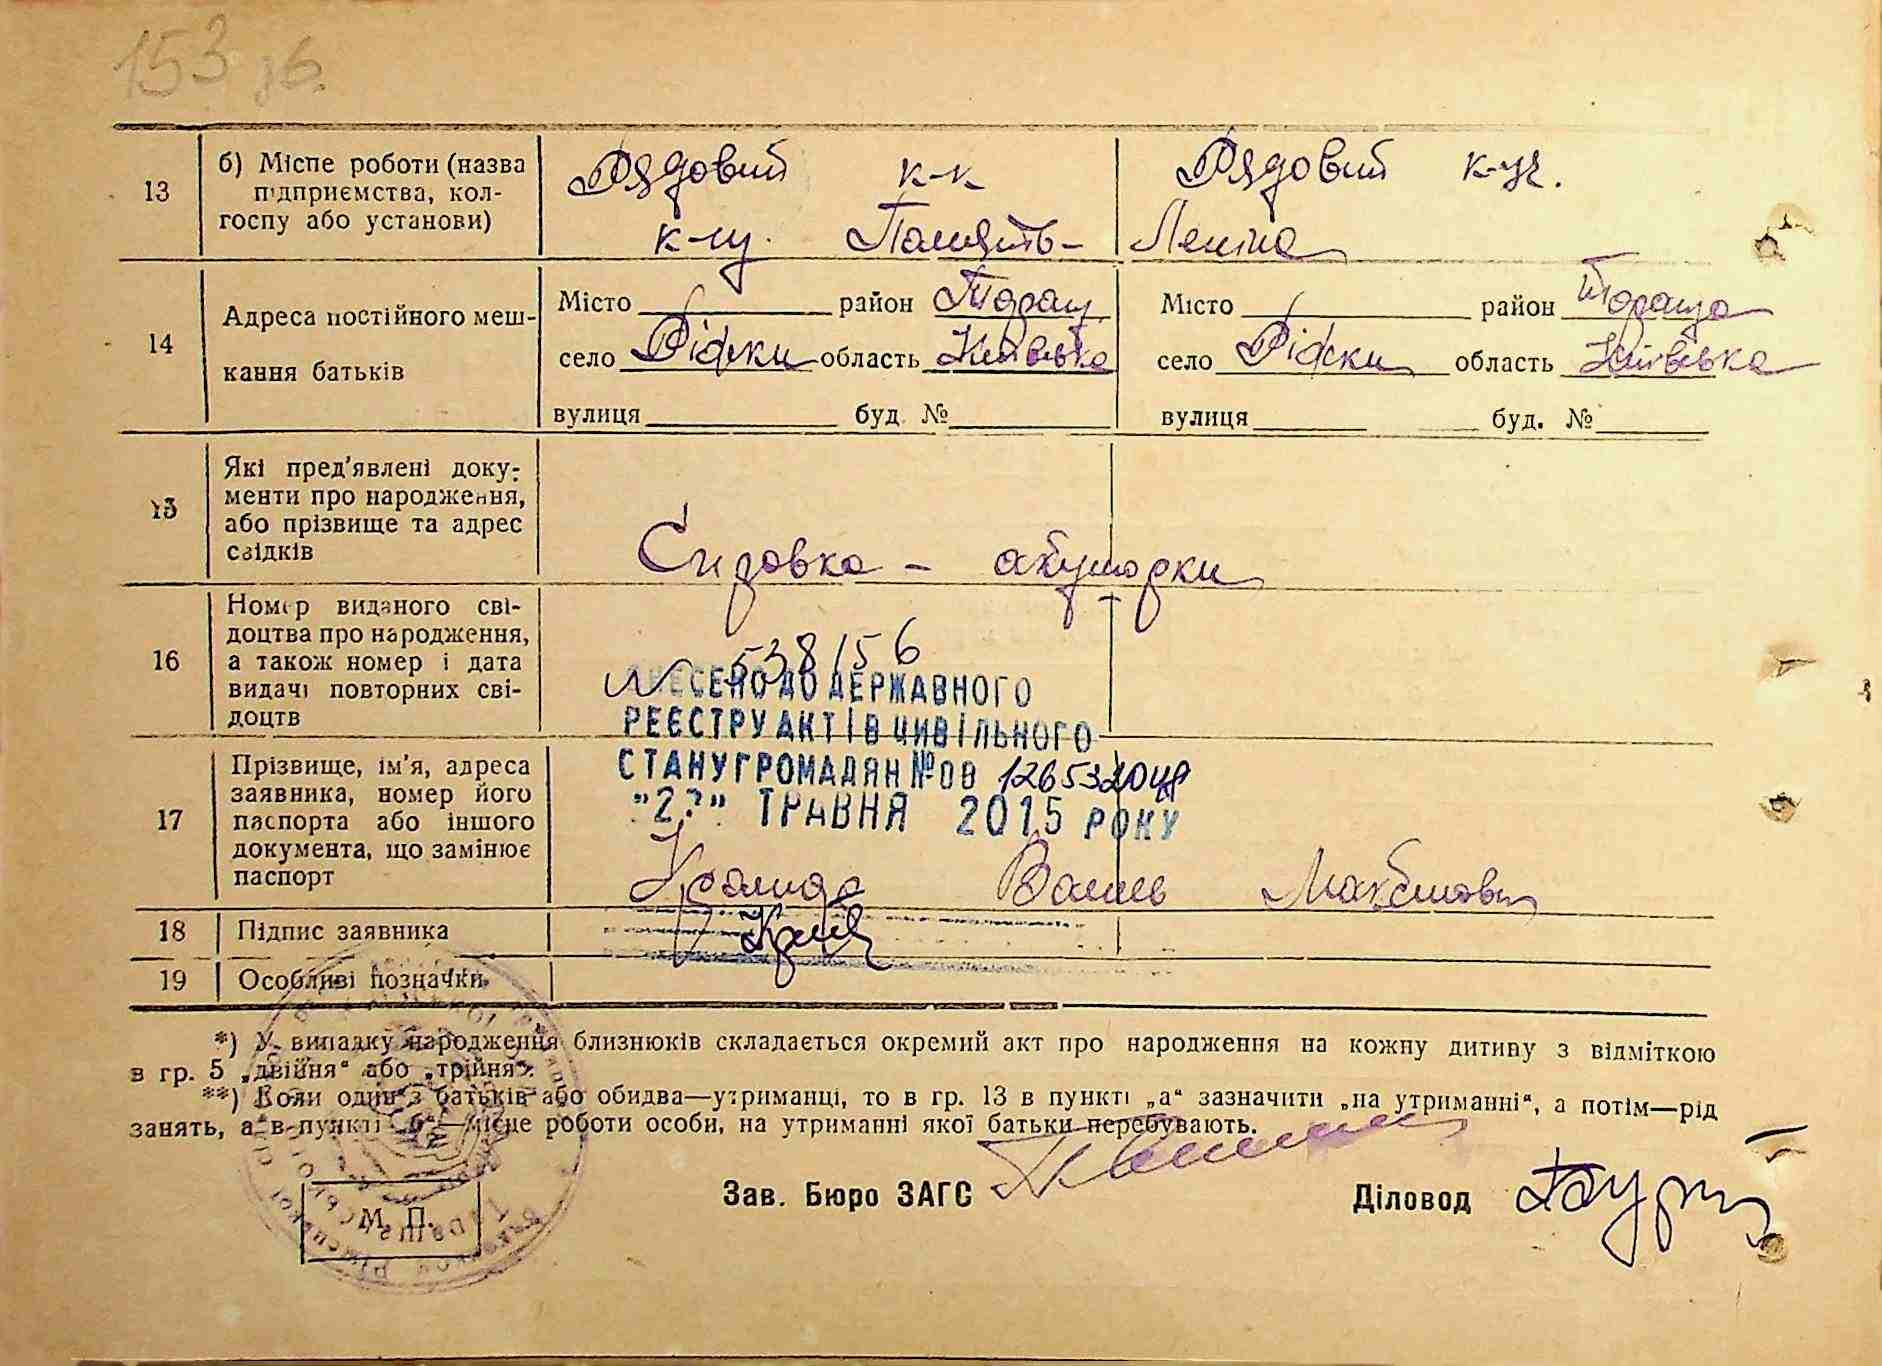 153 зб.
13
б) Місце роботи (назва підприємства, колгоспу або установи)
Рядовий к-к
к-пу. Память-
Рядовий к-ук.
Леніна
14
Адреса постійного мешкання батьків
Місто район Таращ.
село Ріжки область Київська
вулиця буд. №
Місто район Тараща
село Ріжки область Київська
вулиця буд. №
15
Які пред'явлені документи про народження, або прізвище та адрес свідків
Справка - акушорки
16
Номер виданого свідоцтва про народження, а також номер і дата видачі повторних свідоцтв
№ 538156
ВНЕСЕНО ДО ДЕРЖАВНОГО
РЕЄСТРУ АКТІВ ЦИВІЛЬНОГО
СТАНУ ГРОМАДЯН № 00126532048
"27" ТРАВНЯ 2015 РОКУ
17
Прізвище, ім'я, адреса заявника, номер його паспорта або іншого документа, що замінює паспорт
18
Підпис заявника
19
Особливі позначки
*) У випадку народження близнюків складається окремий акт про народження на кожну дитину з відміткою
в гр. 5 „двійня“ або „трійня“.
**) Коли один з батьків або обидва—утриманці, то в гр. 13 в пункті „а“ зазначити „на утриманні“, а потім—рід
занять, а в пункті „б“—місце роботи особи, на утриманні якої батьки перебувають.
Зав. Бюро ЗАГС
Діловод
М. П.